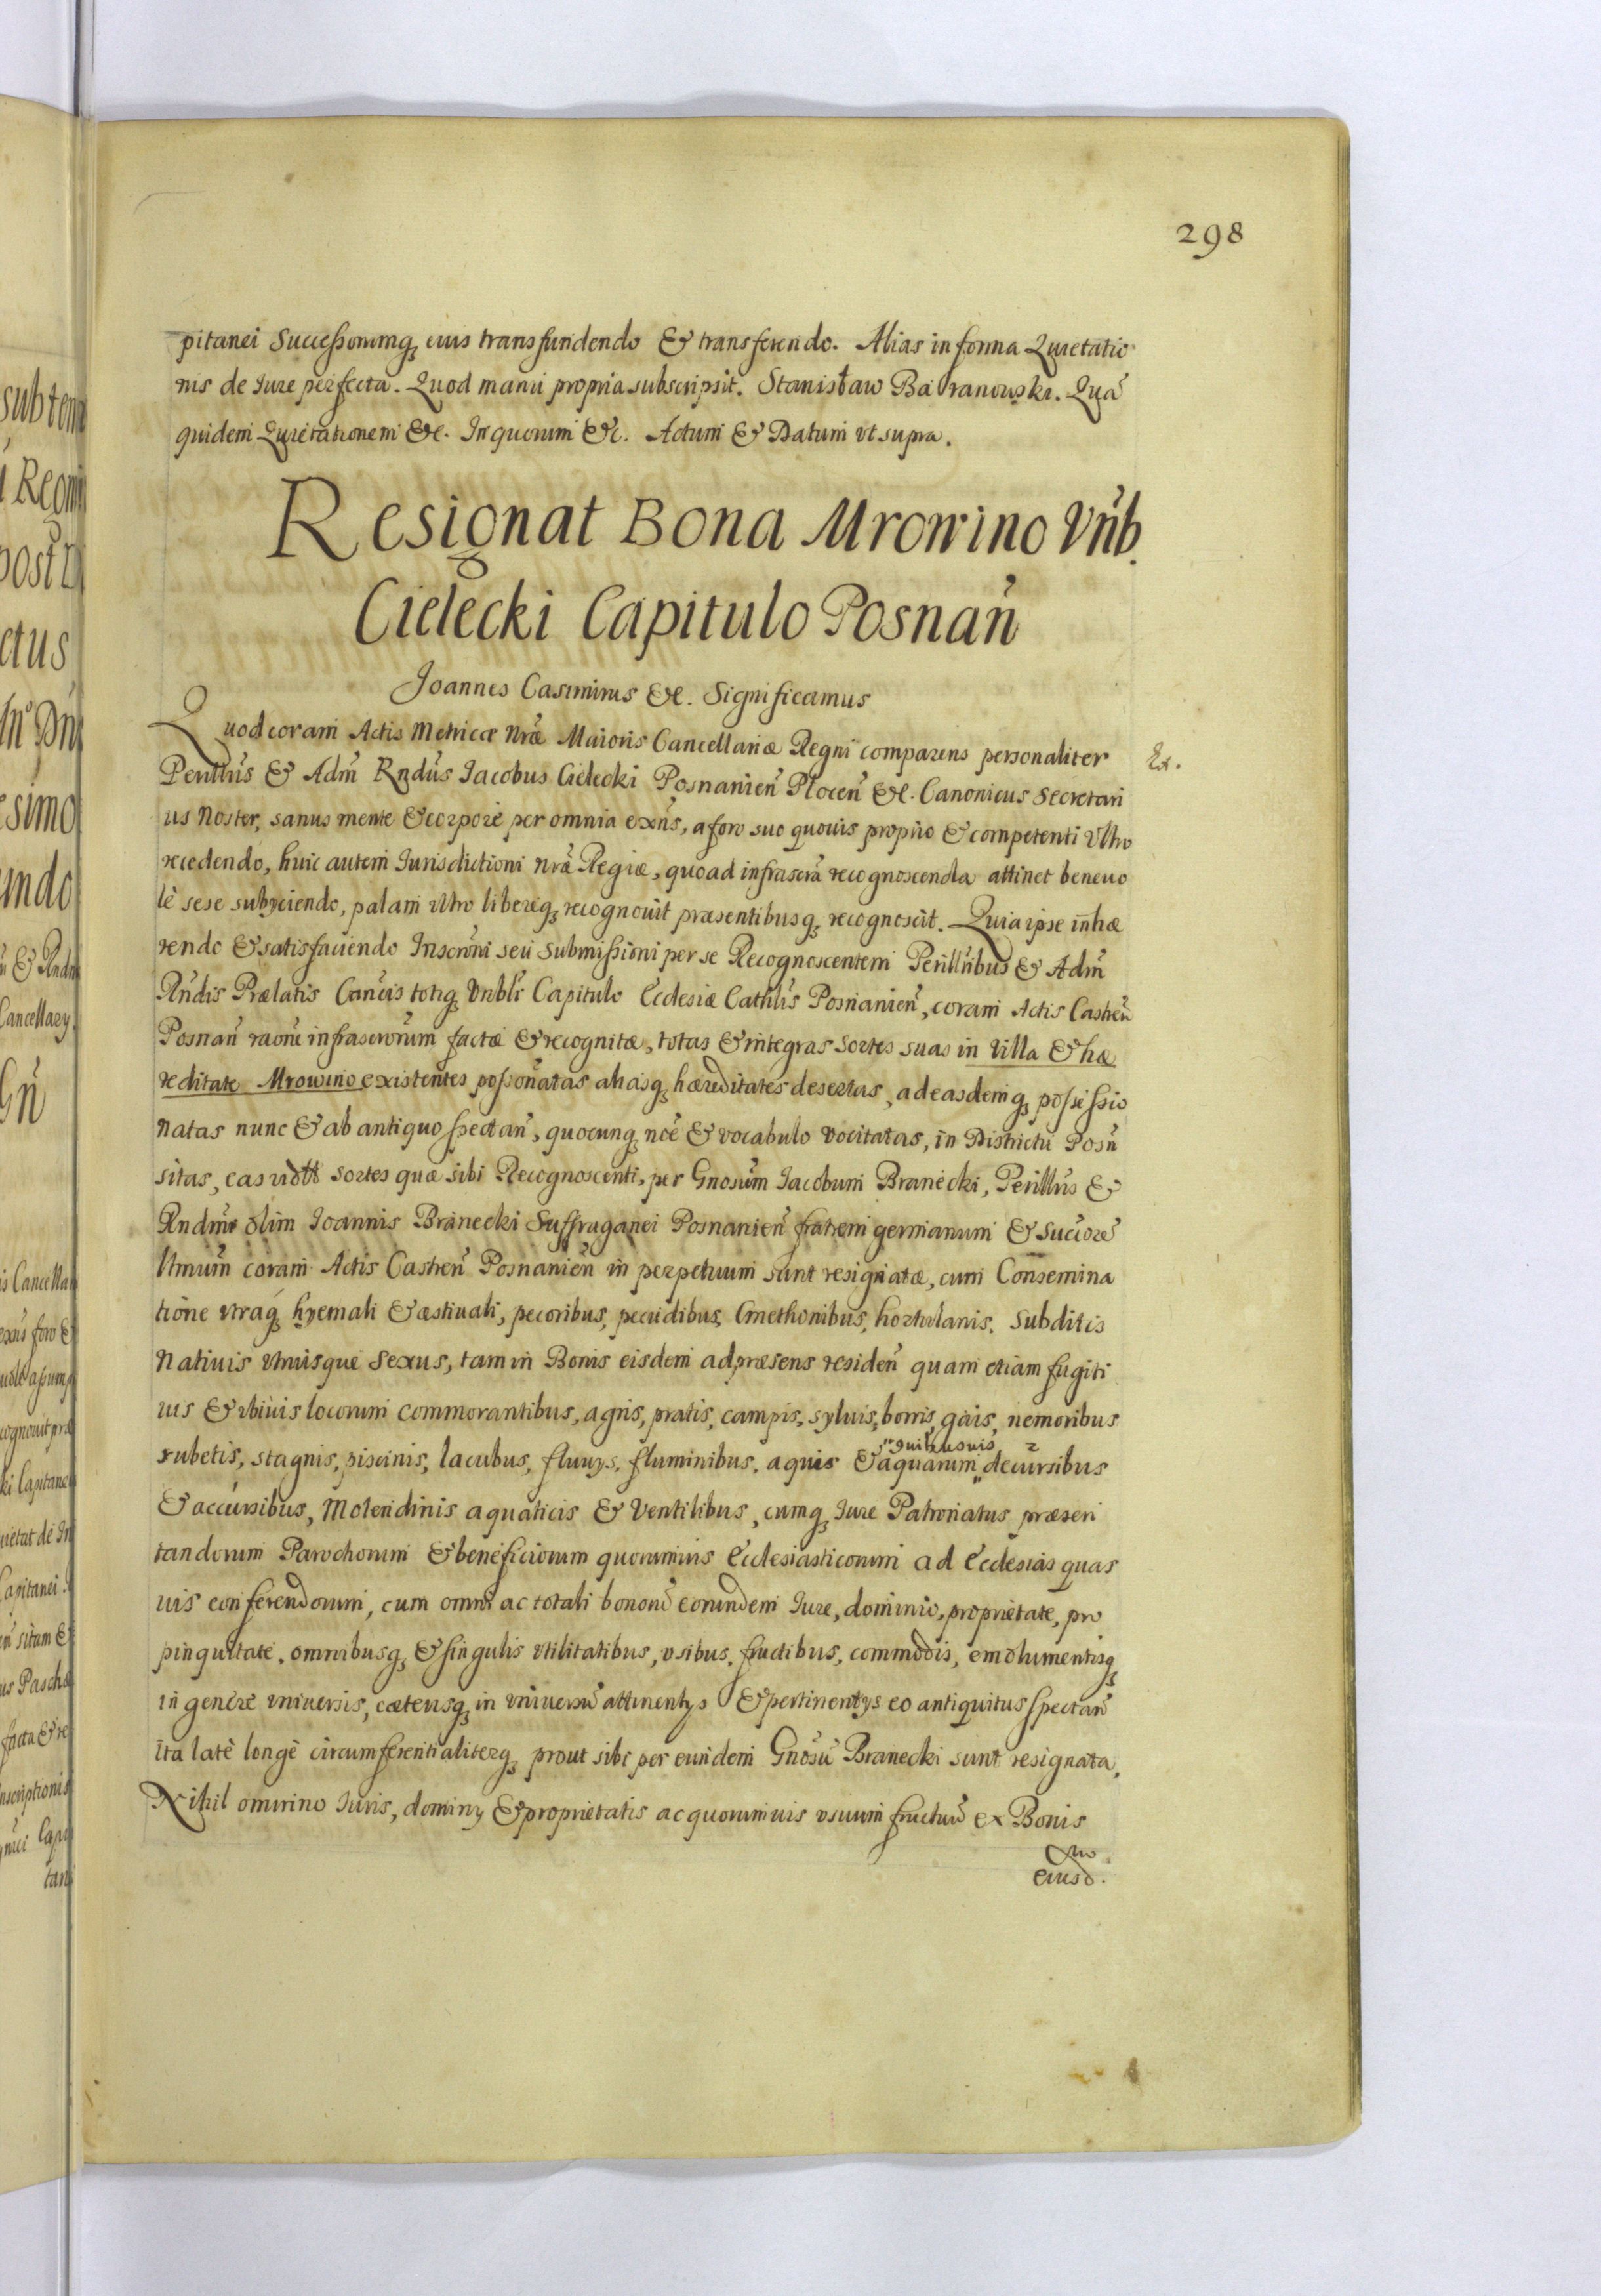 298
pitanei Successorumq, eius transfundendo & transferendo. Alias in forma Quietatio
nis de Iure perfecta. Quod manu propria subscripsit. Stanisław Baranowski. Quã
quidem Quietationem &c. In quorum &c. Actum & Datum ut supra.
Resignat Bona Mrowino Vñb.
Cielecki Capitulo Posnañ
Joannes Casimirus &c. Significamus
Quod coram Actis Metricæ Nræ Maioris Cancellariæ Regni comparens personaliter
Ex.
Perillũs & Adm̃ Rndus Iacobus Cielecki Posnanieñ Ploceñ &c. Canonicus Secretari
us Noster, sanus mente & corpore per omnia exñs, a foro suo quouis proprio & competenti Vltro
recedendo, huic autem Iurisdictioni Nræ Regiæ, quoad infrascrã recognoscenda attinet beneuo
lè sese subÿciendo, palam vltro libereq, recognouit præsentibusq, recognoscit. Quia ipse inhæ
rendo & satisfaciendo Inscrñi seu Submissioni per se Recognoscentem Perilłribus & Adm̃
Rñdis Prælatis Cañcis totiq, Vnbłi Capitulo Ecclesiæ Cathłis Posnanieñ, coram Actis Castreñ
Posnañ raõne infrascrorũm factæ & recognitæ, totas & integras Sortes suas in Villa & hæ
reditate Mrowino existentes possoñatas aliasq, hæreditates desertas, ad easdemq, possessio
natas nunc & ab antiquo spectañ, quocunq, noĩe & vocabulo vocitatas, in Districtu Posñ
sitas, eas vidłt sortes quæ sibi Recognoscenti, per Gnosũm Iacobum Branecki, Perillũs &
Rndmi olim Ioannis Branecki Suffraganei Posnanieñ fratrem germanum & Succiorẽ
Vnicũm coram Actis Castreñ Posnanieñ in perpetuum sunt resignatæ, cum Consemina
tione vtraq, hyemali & æstiuali, pecoribus, pecudibus, Cmethonibus, hortulanis, Subditis
Natiuis vtriusque Sexus, tam in Bonis eisdem ad præsens resideñ quam etiam fugiti
uis & vbiuis locorum commorantibus, agris, pratis, campis, syluis, borris, gais, nemoribus
rubetis, stagnis, piscinis, lacubus, fluuÿs, fluminibus, aquis & aquarum "quibusuis decursibus
& accursibus, Molendinis aquaticis & Ventilibus, cumq, Iure Patronatus præsen
tandorum Parochorum & beneficiorum quorumuis Ecclesiasticorum ad Ecclesias quas
uis conferendorum, cum omni ac totali bonorũ eorundem Iure, dominio, proprietate, pro
pinquitate, omnibusq, & singulis vtilitatibus, vsibus, fructibus, commodis, emolumentisq,
in genere vniuersis, cæterisq, in vniuersũ attinentÿs & pertinentÿs eo antiquitus spectañ
Ita latè longè circumferentialiterq, prout sibi per eundem Gnosũ Branecki sunt resignata.
Nihil omnino Iuris, dominÿ & proprietatis ac quorumuis vsuum fructuũ ex Bonis
eiusd.